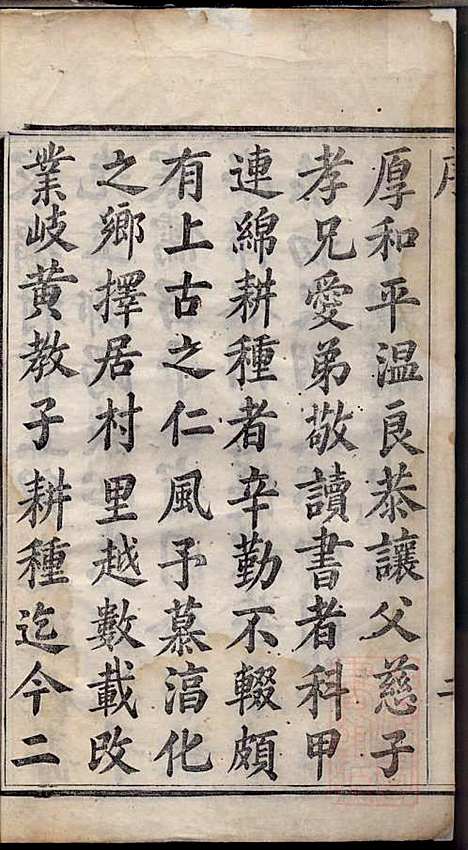 厚和平溫良恭讓父慈子
孝兄愛弟敬讀書者科甲
連綿耕種者辛勤不輟頗
有上古之仁風予慕淳化
之鄉擇居村里越數載改
業岐黃教子耕種迄今二